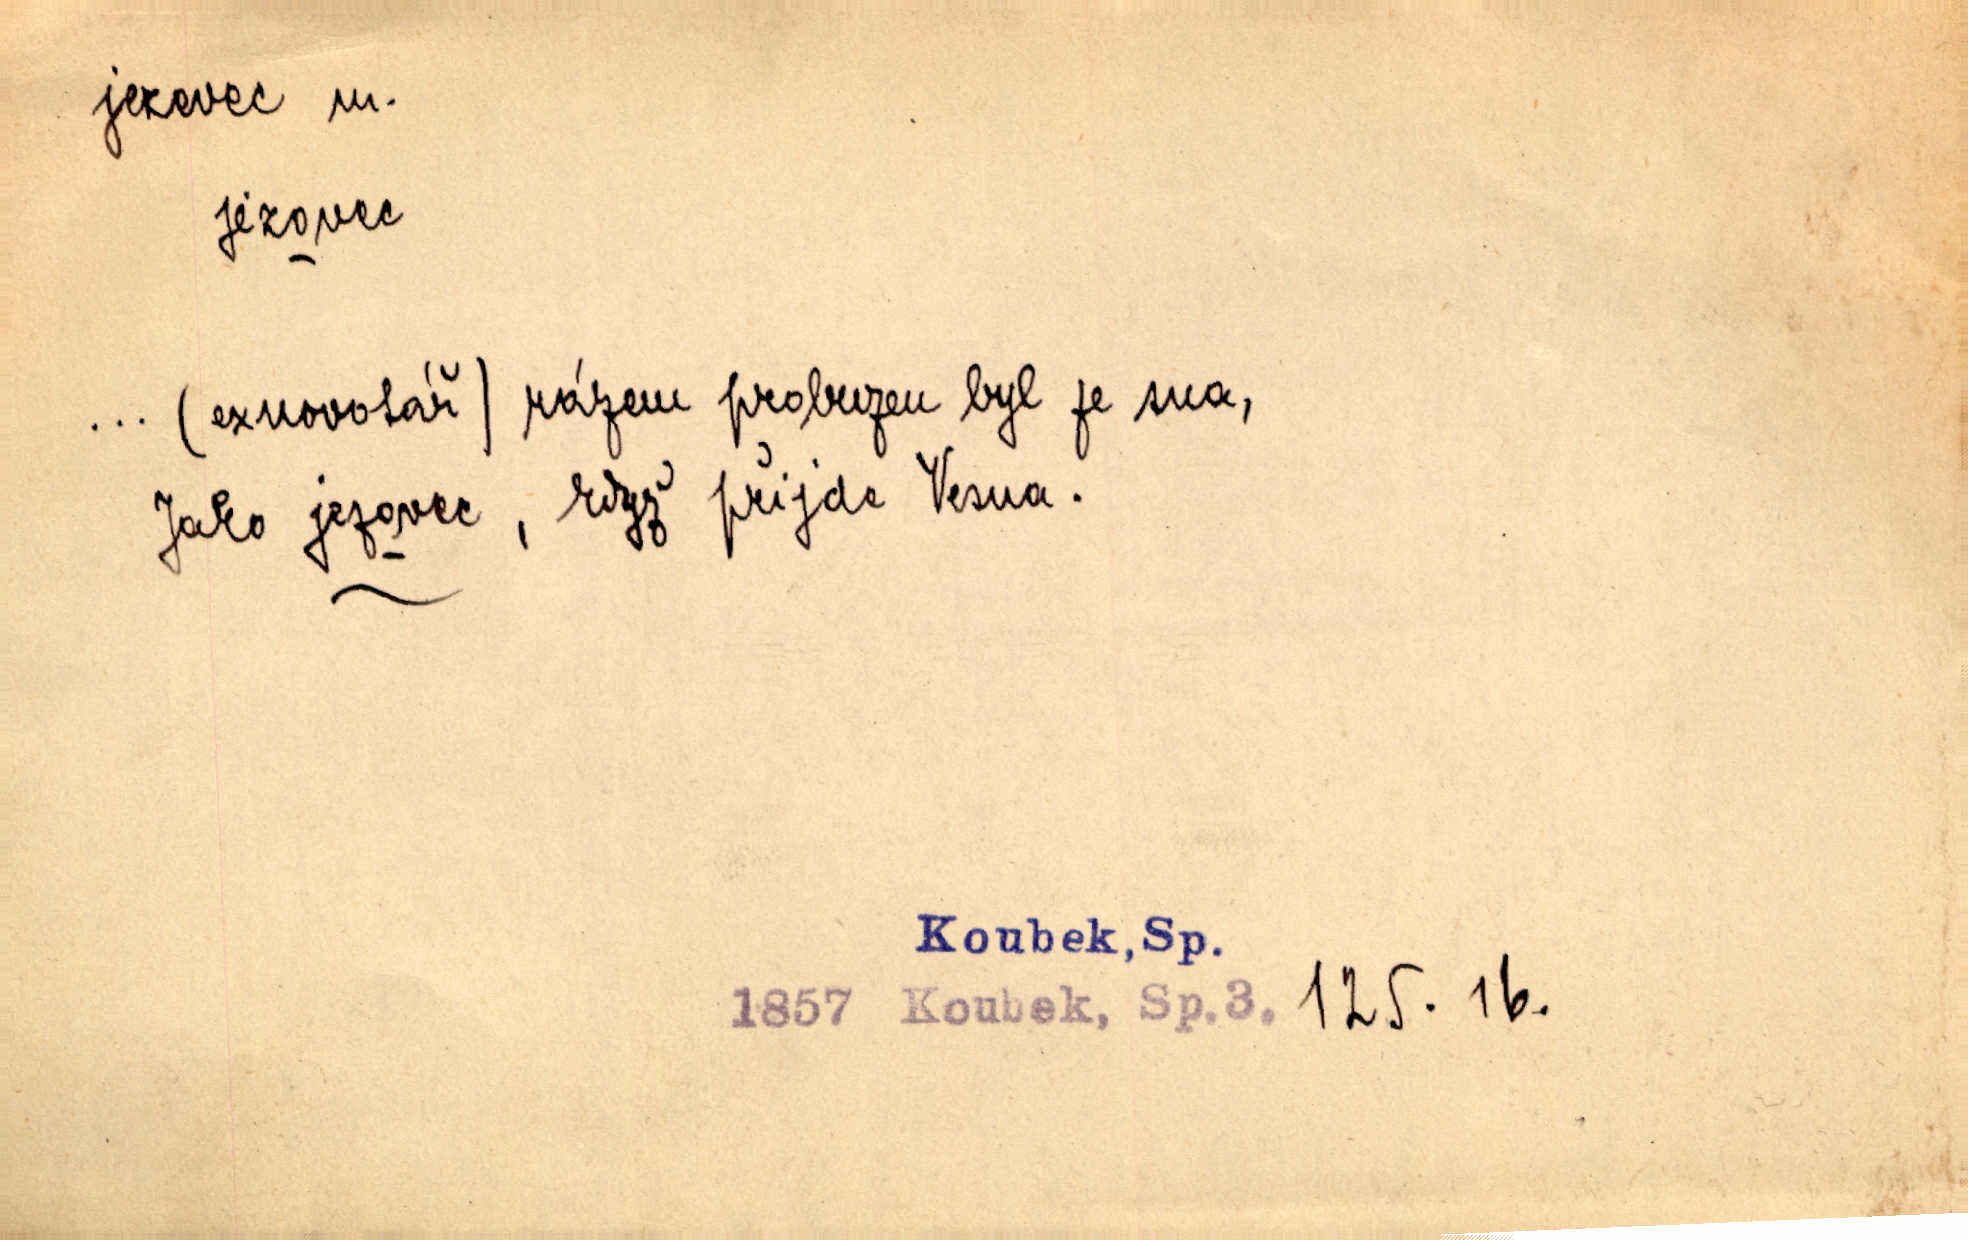 jezevec m.
jezovec
... (exnovotář) rázem probuzen byl ze sna,
Jako jezovec, když přijde Vesna.
Koubek, Sp.
1857 Koubek, Sp.3. 125. 16.